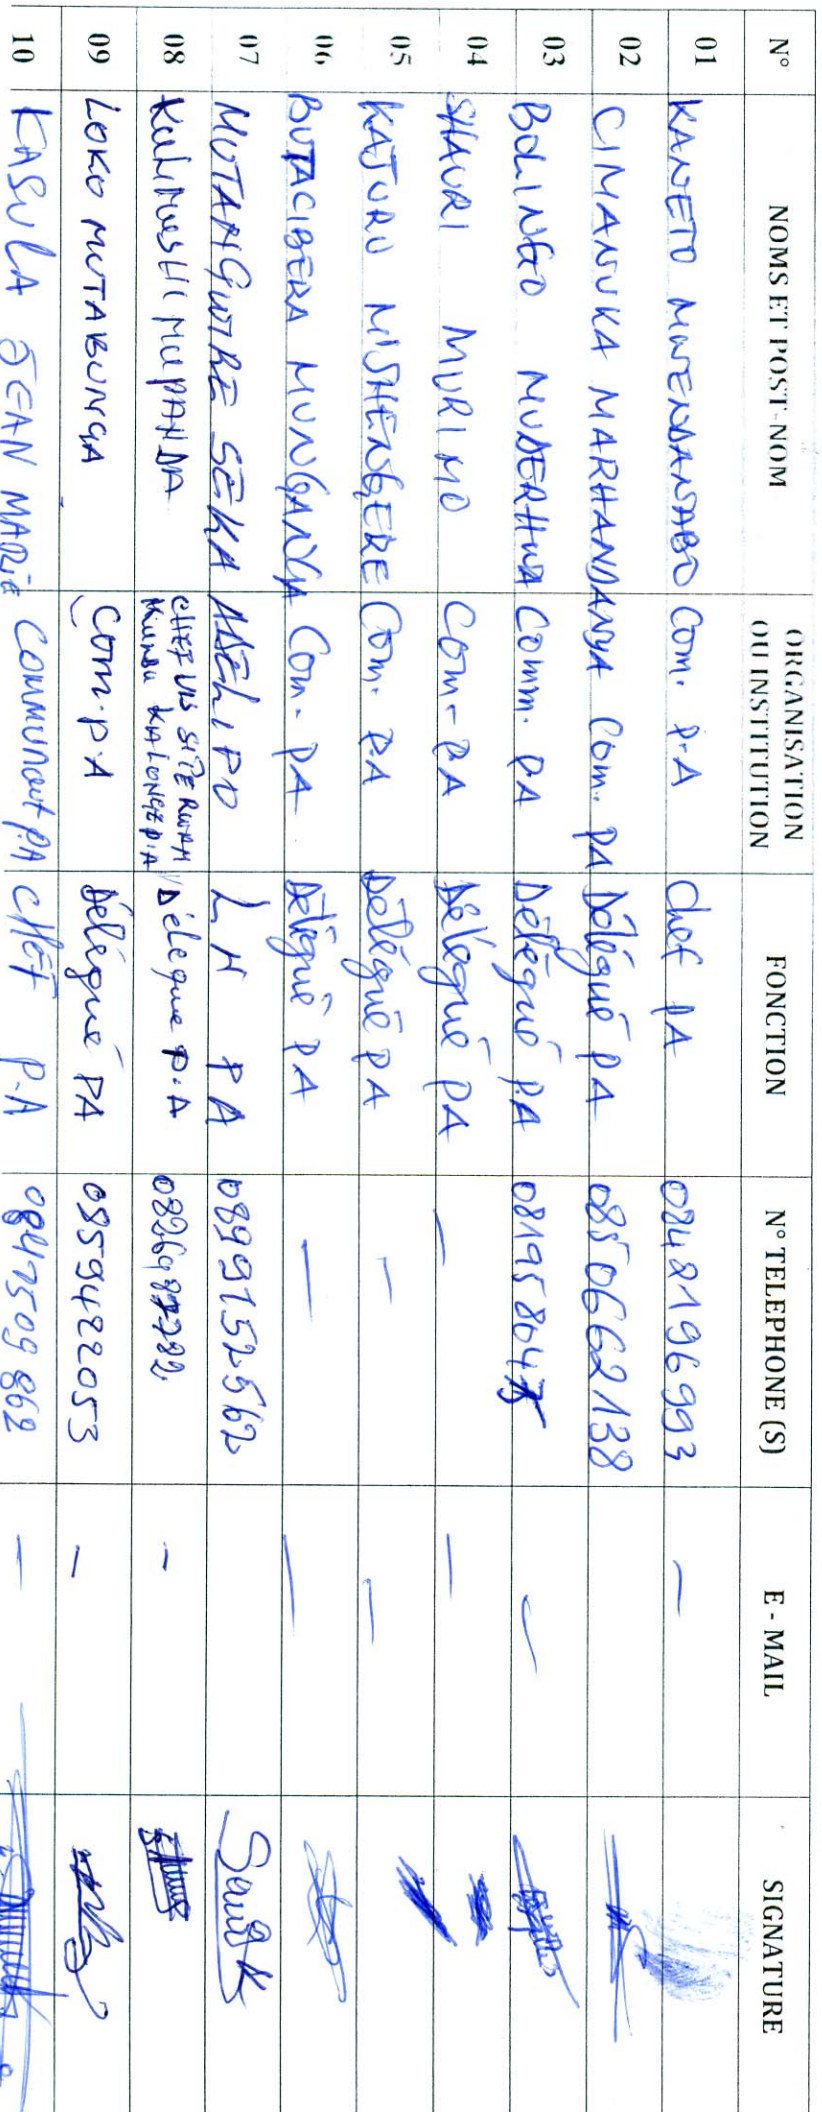 N° NOMS ET POST-NOM ORGANISATION OU INSTITUTION FONCTION N° TELEPHONE (S) E - MAIL SIGNATURE
01 KANETO MWENDANABO Com. P.A Chef PA 0842196993 —
02 CIMANUKA MARHANDANYA Com. PA Délégué PA 0850662138
03 BOLINGO MUDERHWA Comm. PA Délégué P.A
04 SHAURI MURIMO Com-PA Délégué PA — —
05 KAJURU MISHENGERE Com. P.A Délégué PA — —
06 BUTACIBERA MUNGANGA Com. PA Délégué PA — —
07 MUTANGWIRE SEKA L N PA 0899152562
08 CHEF SITE KALONGE P.A Délégué P.A —
09 LOKO MUTABUNGA Com.P.A Délégué PA 0859422053 —
10 KASULA JEAN MARIE Communaut PA CHEF P.A —